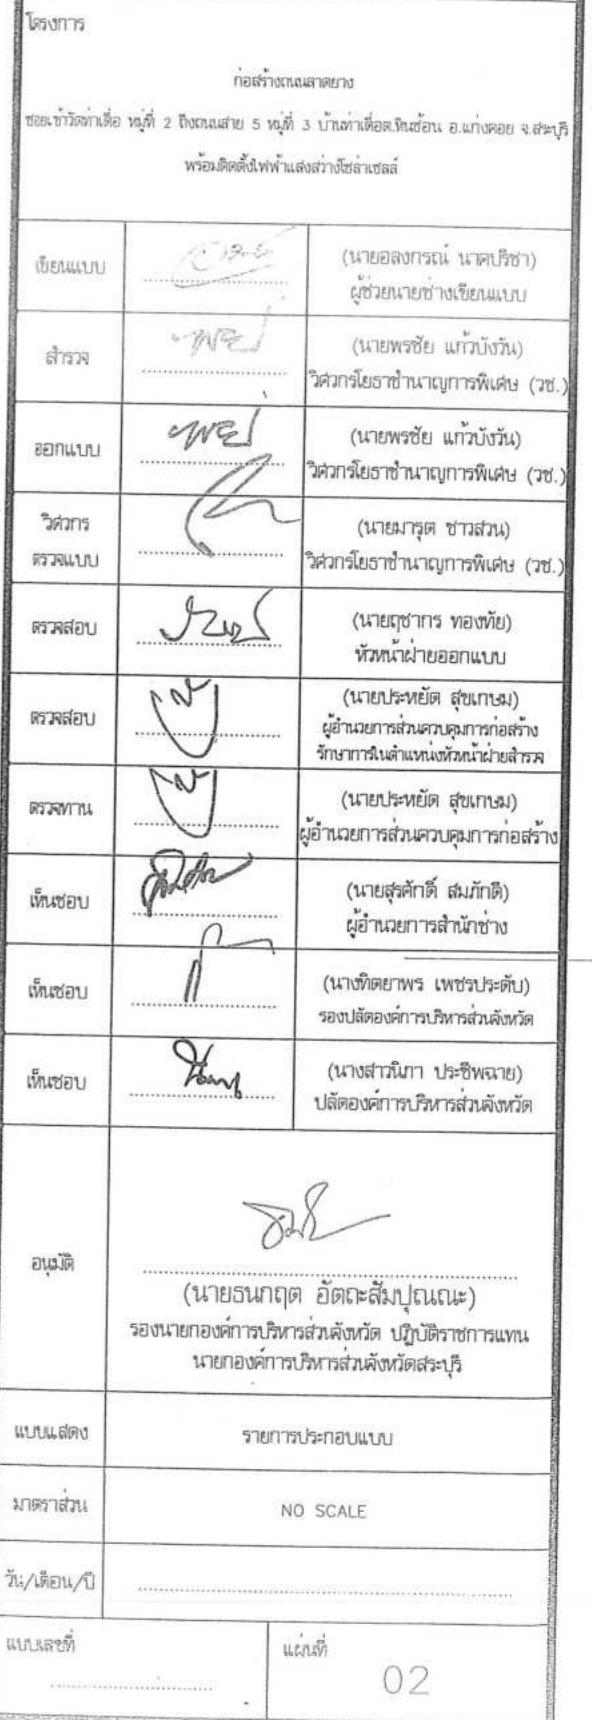 โครงการ
ก่อสร้างถนนลาดยาง
ซอยเข้าวัดท่าเดื่อ หมู่ที่ 2 ถึงถนนสาย 5 หมู่ที่ 3 บ้านท่าเดื่อต.หินซ้อน อ.แก่งคอย จ.สระบุรี
พร้อมติดตั้งไฟฟ้าแสงสว่างโซล่าเซลล์
เขียนแบบ
(นายอลงกรณ์ นาคปรีชา)
ผู้ช่วยนายช่างเขียนแบบ
สำรวจ
(นายพรชัย แก้วบังวัน)
วิศวกรโยธาชำนาญการพิเศษ (วช.)
ออกแบบ
(นายพรชัย แก้วบังวัน)
วิศวกรโยธาชำนาญการพิเศษ (วช.)
วิศวกร
ตรวจแบบ
(นายมารุต ชาวสวน)
วิศวกรโยธาชำนาญการพิเศษ (วช.)
ตรวจสอบ
(นายฤชากร ทองทัย)
หัวหน้าฝ่ายออกแบบ
ตรวจสอบ
(นายประหยัด สุขเกษม)
ผู้อำนวยการส่วนควบคุมการก่อสร้าง
รักษาการในตำแหน่งหัวหน้าฝ่ายสำรวจ
ตรวจทาน
(นายประหยัด สุขเกษม)
ผู้อำนวยการส่วนควบคุมการก่อสร้าง
เห็นชอบ
(นายสุรศักดิ์ สมภักดี)
ผู้อำนวยการสำนักช่าง
เห็นชอบ
(นางทิตยาพร เพชรประดับ)
รองปลัดองค์การบริหารส่วนจังหวัด
เห็นชอบ
(นางสาวนิภา ประชีพฉาย)
ปลัดองค์การบริหารส่วนจังหวัด
อนุมัติ
(นายธนกฤต อัตถะสัมปุณณะ)
รองนายกองค์การบริหารส่วนจังหวัด ปฏิบัติราชการแทน
นายกองค์การบริหารส่วนจังหวัดสระบุรี
แบบแสดง
รายการประกอบแบบ
มาตราส่วน
NO SCALE
วัน/เดือน/ปี
แบบเลขที่
แผ่นที่
02